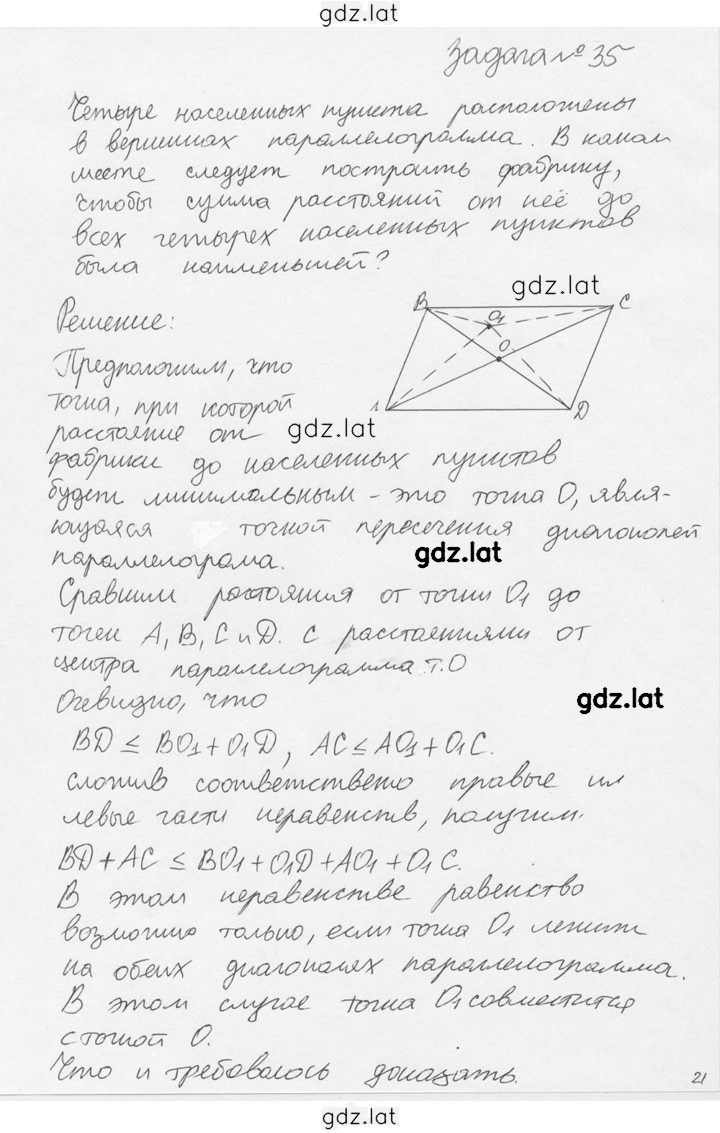 gdz.lat
Задача № 35
Четыре населенных пункта расположены
в вершинах параллелограмма. В каком
месте следует построить фабрику,
чтобы сумма расстояний от неё до
всех четырех населенных пунктов
была наименьшей?
gdz.lat
Решение:
B C
O1
O
A D
Предположим, что
точка, при которой
gdz.lat
расстояние от
фабрики до населенных пунктов
будет минимальным - это точка O, явля-
ющаяся точкой пересечения диагоналей
gdz.lat
параллелограма.
Сравним расстояния от точки O1 до
точек A, B, C и D. с расстояниями от
центра параллелограмма т.O
Очевидно, что
gdz.lat
BD ≤ BO1 + O1D, AC ≤ AO1 + O1C.
сложив соответствено правые ил
левые части неравенств, получим.
BD + AC ≤ BO1 + O1D + AO1 + O1C.
В этом неравенстве равенство
возможно только, если точка O1 лежит
на обеих диагоналях параллелограмма.
В этом случае точка O1 совместится
с точкой O.
Что и требовалось доказать.
21
gdz.lat